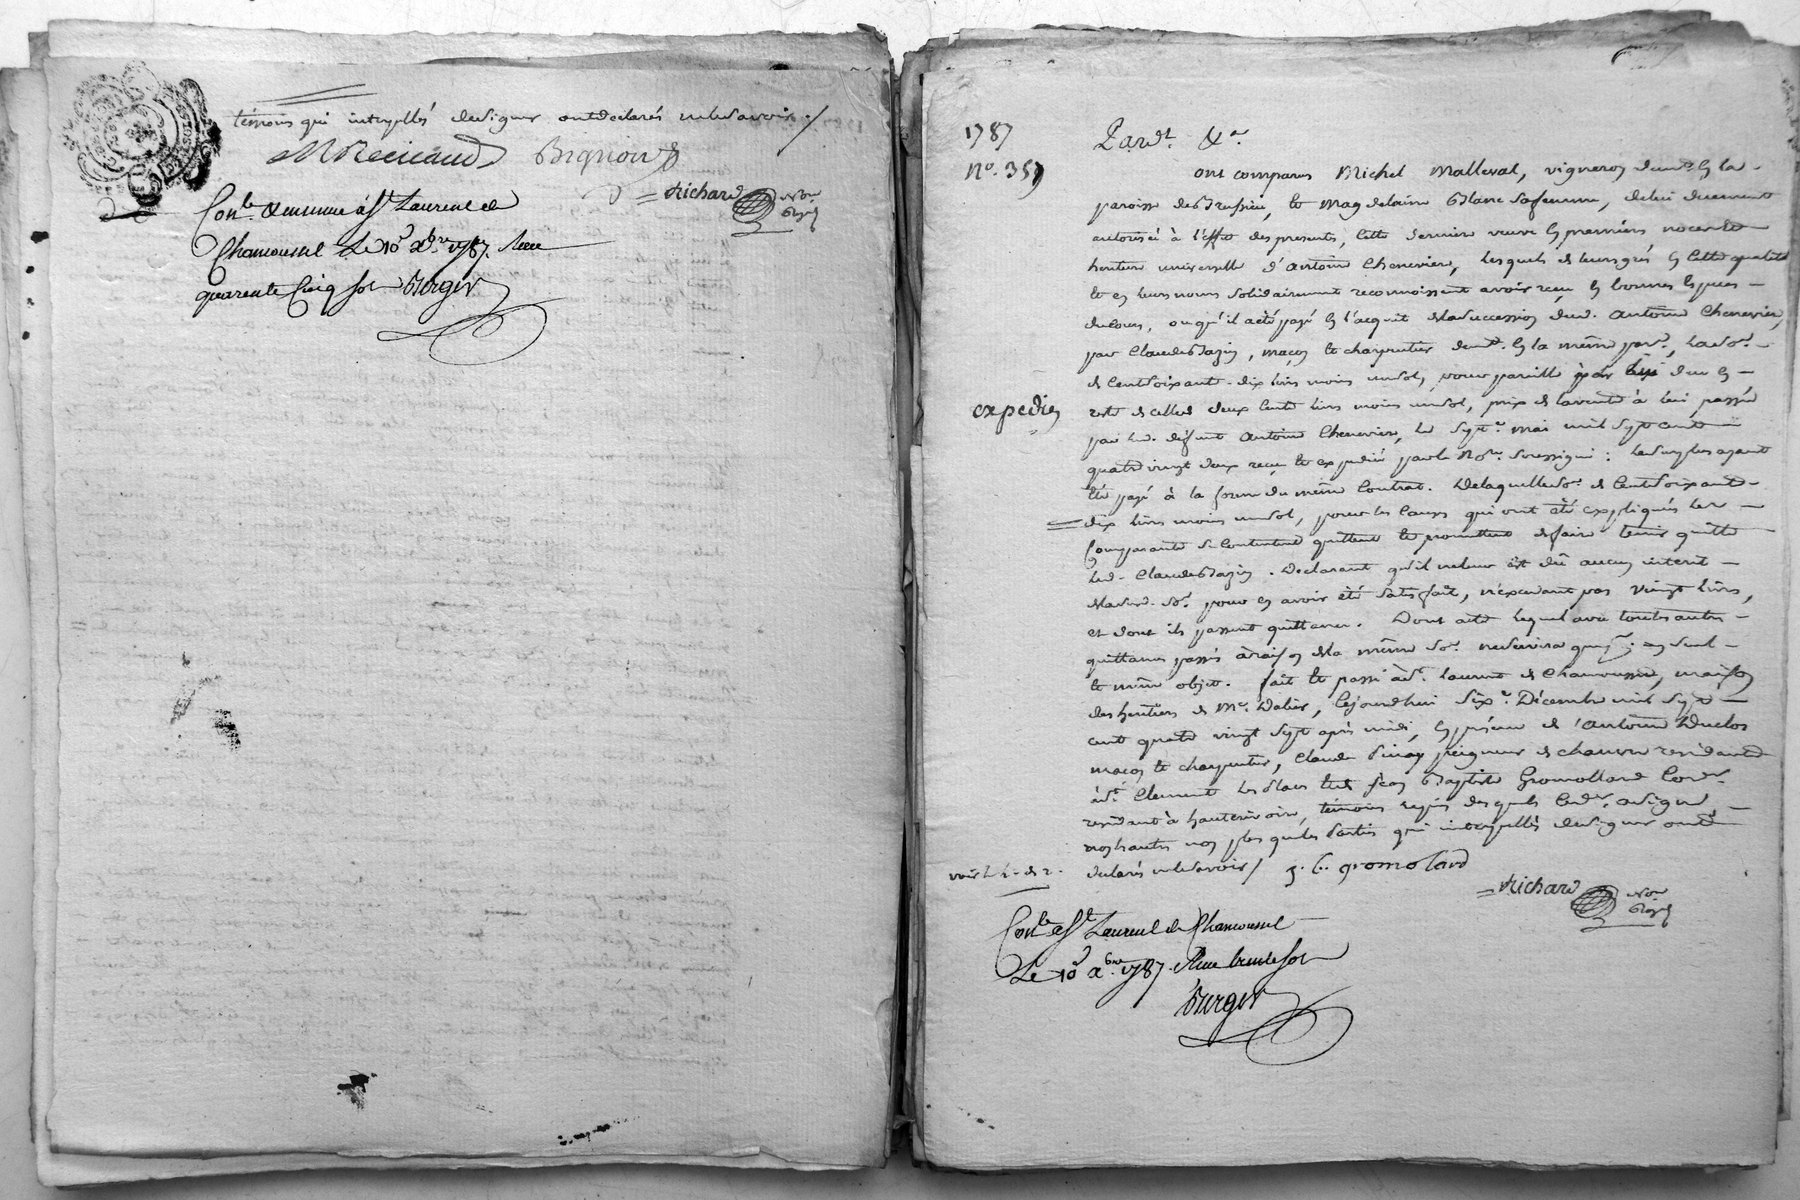 témoins qui interpellés designer ont declarés nele savoir ./
Bignon
= Richard Nore
Royal
Con.le à St Laurent de
Chamousset Le 10 Xbre 1787. Recu
quarente Cinq sol Berger
1787
No. 359
Pard.t &a
ont comparus Michel Malleval, vigneron dem.t en la -
paroisse de Brussieu, et Magdelaine Blanc sa femme, de lui duement
autorisée à l'effet des presentes, cette derniere veuve en premieres noces et
heritiere universelle d'antoine Chenevier, lesquels de leurs grés en cette qualité
et en leurs noms solidairement reconnoissent avoir reçu en bonnes especes -
ducours, ou qu'il a été payé en l'acquit de la succession dud. antoine Chenevier,
par Claude Bazin, maçon et charpentier dem.t en la même par.e, la so.e -
de cent soixante-dix livres moins un sol, pour pareille par lui due en -
reste de celle de deux cents livres moins un sol, prix de la vente à lui passée
par led. défunt antoine Chenevier, le sept.e mai mil sept cent
quatre vingt deux reçue et expediée par le No.re soussigné : le surplus ayant
été payé à la forme du même Contrat. De laquelle so.e de cent soixante-
dix livres moins un sol, pour les causes qui ont été expliquées les -
Comparants se contentent quittent et promettent de faire tenir quitte
led. Claude Bazin. Declarant qu'il ne leur est dû aucun interet -
de lad. so.e pour en avoir été satisfait, n'excedant pas vingt livres,
et dont ils passent quittance. Dont acte lequel avec toutes autres -
quittances passées à raison de la même so.e ne servira que p.r un seul -
et même objet. fait et passé à St. Laurent de Chamousset, maison
des heritiers de Me. Dalier, cejourdhui six.e Décembre mil sept -
cent quatre vingt sept après midi, en présence de antoine Duclos
maçon et charpentier, Claude Pinay peigneur de chanvre residants
à St. Clement les places et de Jean Baptiste Gromollard Cord.r
residant à hauterivoire, témoins requis desquels led.r a signé, -
non les autres non plus que les parties qui interpellés de signer ont
declarés nele savoir / j. b. gromolard
expedié
= Richard Nore
Royal
Con.le à St Laurent de Chamousset
Le 10 Xbre 1787. Recu trente sol
Berger